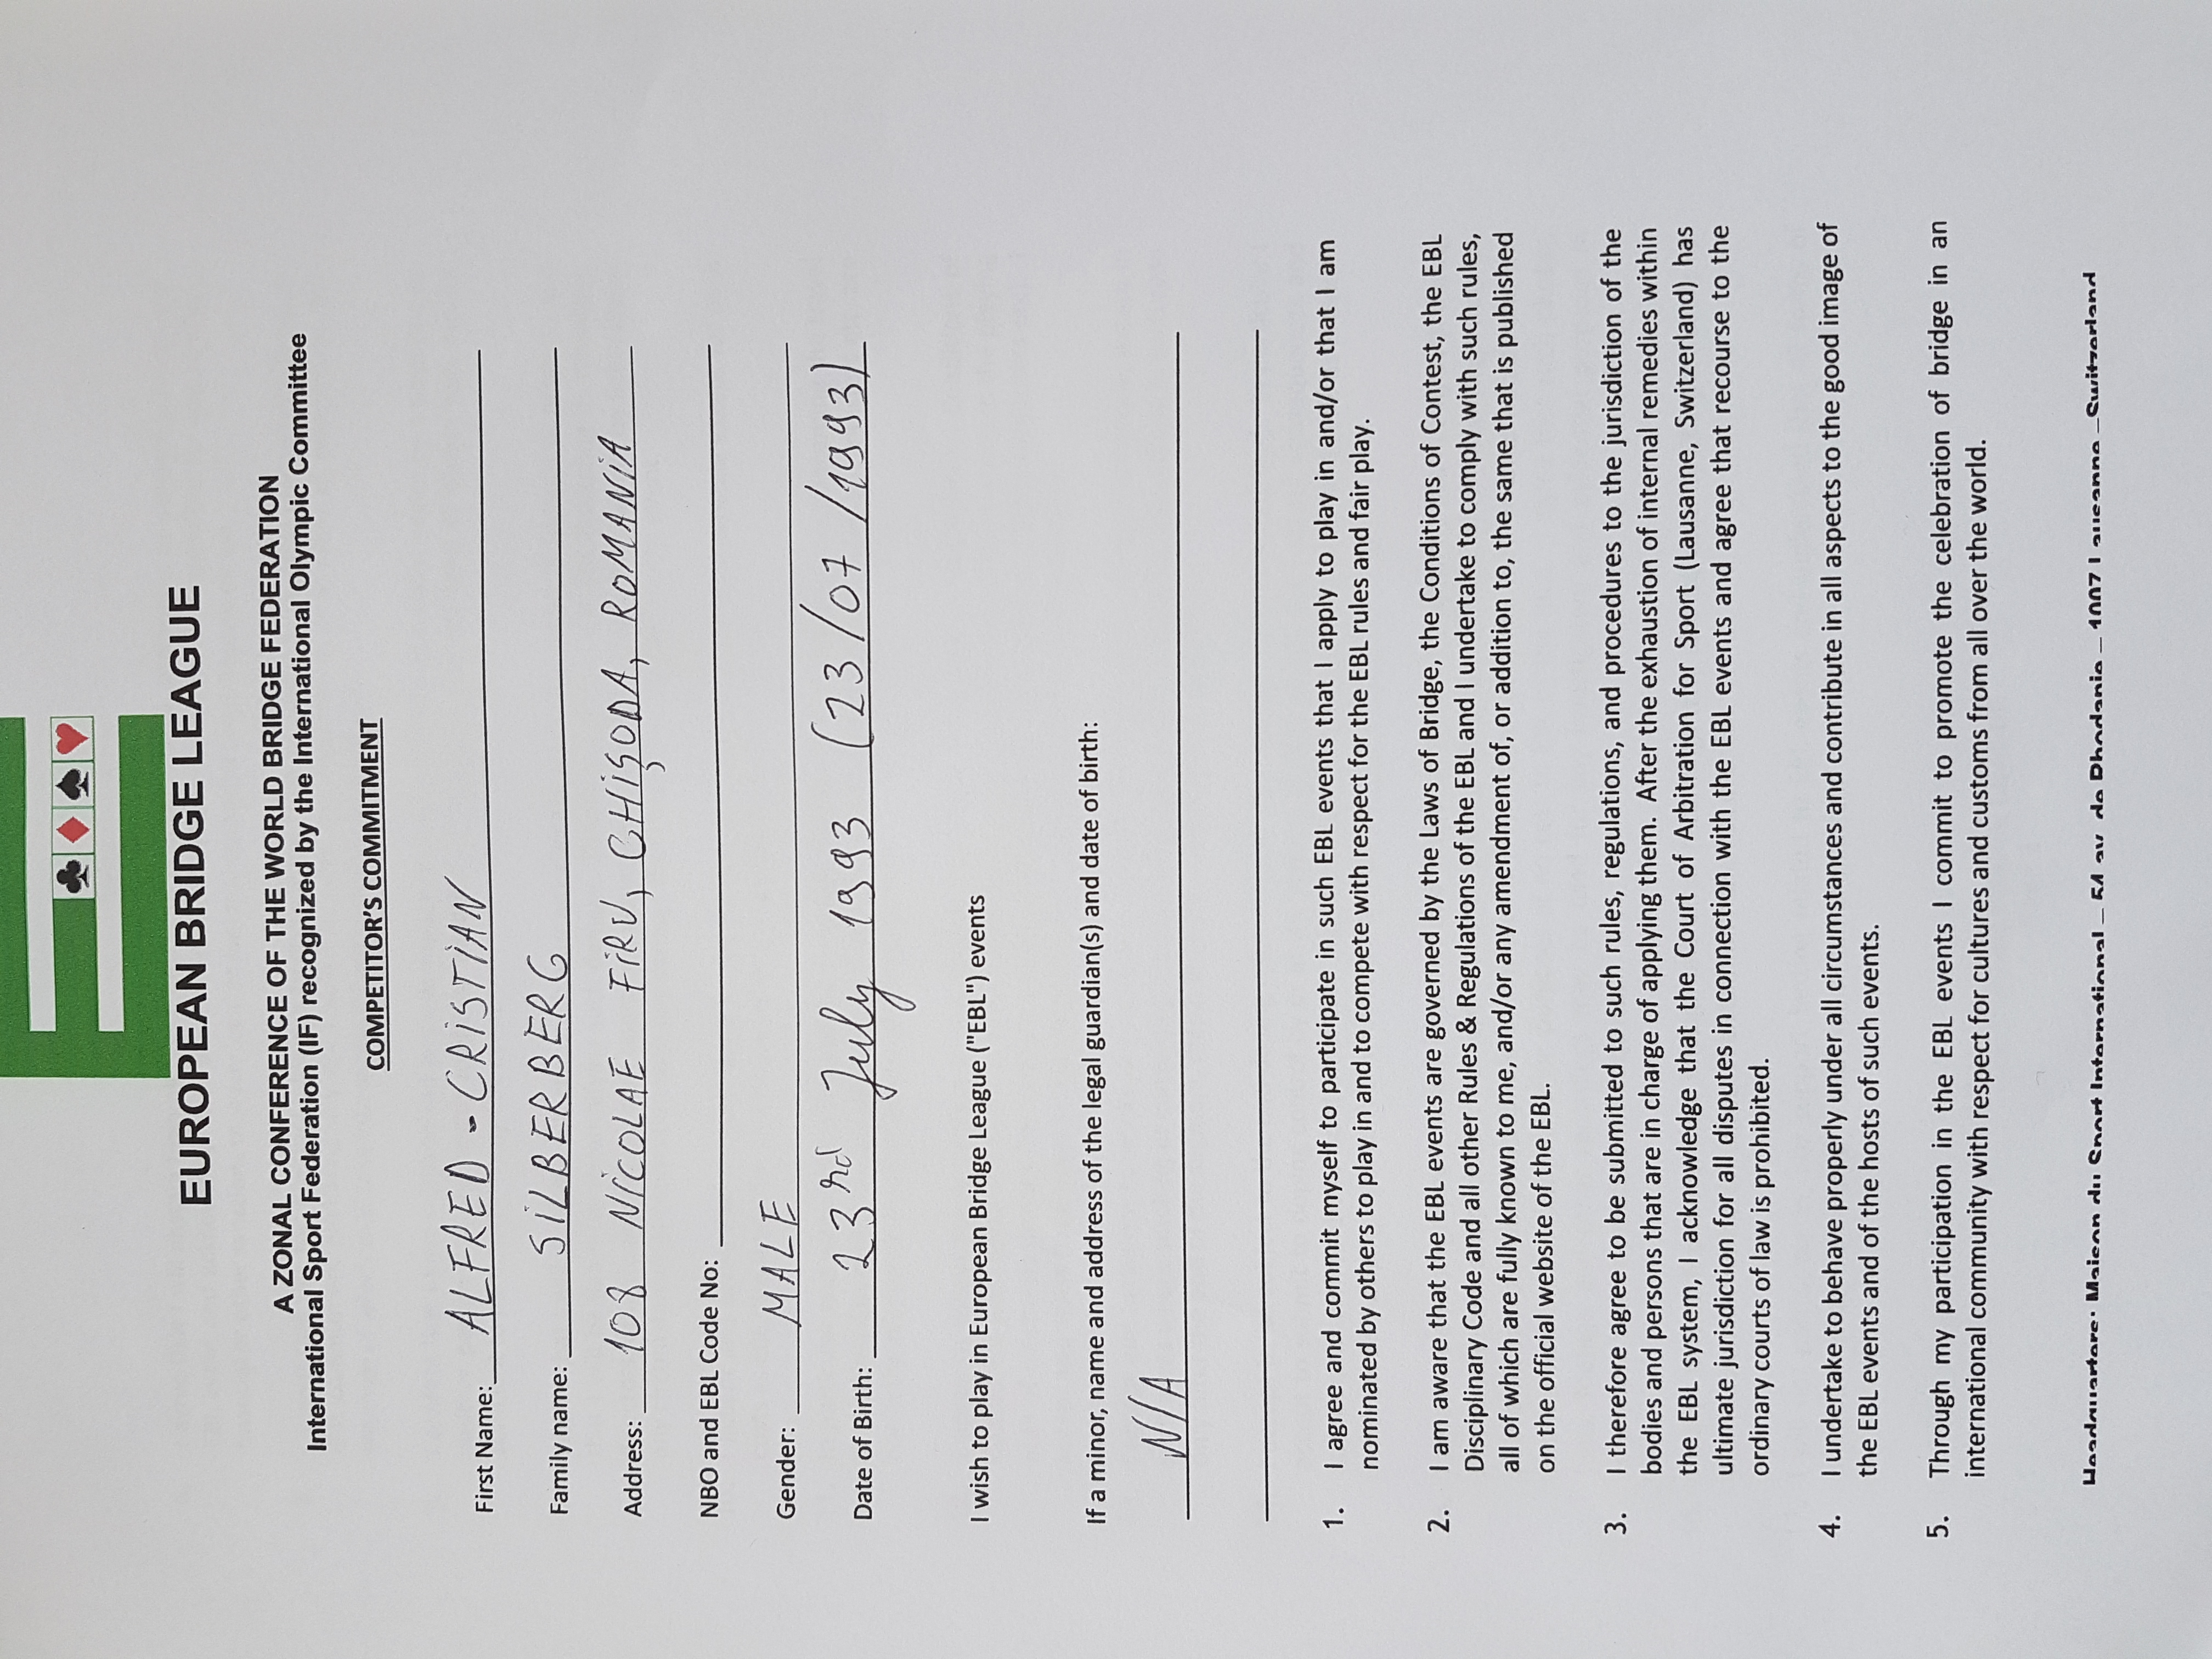 EUROPEAN BRIDGE LEAGUE
A ZONAL CONFERENCE OF THE WORLD BRIDGE FEDERATION
International Sport Federation (IF) recognized by the International Olympic Committee
COMPETITOR'S COMMITMENT
First Name: ALFRED - CRISTIAN
Family name: SILBERBERG
Address: 108 NICOLAE FIRU, GHIȘODA, ROMANIA
NBO and EBL Code No:
Gender: MALE
Date of Birth: 23rd July 1993 (23/07/1993)
I wish to play in European Bridge League ("EBL") events
If a minor, name and address of the legal guardian(s) and date of birth:
N/A
1. I agree and commit myself to participate in such EBL events that I apply to play in and/or that I am
nominated by others to play in and to compete with respect for the EBL rules and fair play.
2. I am aware that the EBL events are governed by the Laws of Bridge, the Conditions of Contest, the EBL
Disciplinary Code and all other Rules & Regulations of the EBL and I undertake to comply with such rules,
all of which are fully known to me, and/or any amendment of, or addition to, the same that is published
on the official website of the EBL.
3. I therefore agree to be submitted to such rules, regulations, and procedures to the jurisdiction of the
bodies and persons that are in charge of applying them. After the exhaustion of internal remedies within
the EBL system, I acknowledge that the Court of Arbitration for Sport (Lausanne, Switzerland) has
ultimate jurisdiction for all disputes in connection with the EBL events and agree that recourse to the
ordinary courts of law is prohibited.
4. I undertake to behave properly under all circumstances and contribute in all aspects to the good image of
the EBL events and of the hosts of such events.
5. Through my participation in the EBL events I commit to promote the celebration of bridge in an
international community with respect for cultures and customs from all over the world.
Headquarters: Maison du Sport International – 54 av. de Rhodanie – 1007 Lausanne –Switzerland